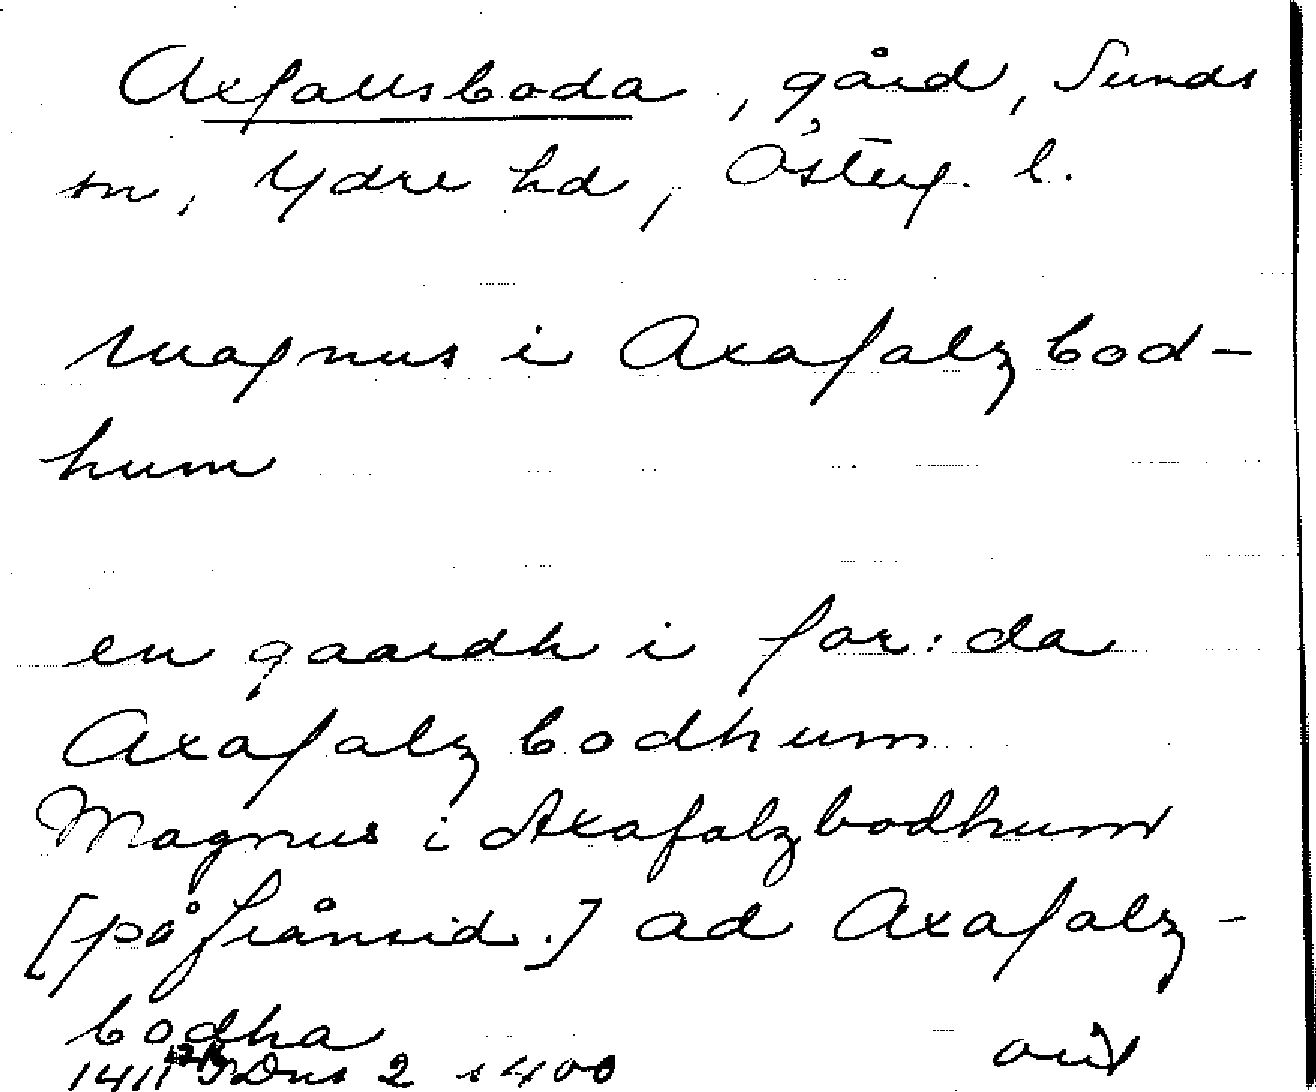 Axfallsboda, gård, Sunds
sn, Ydre hd, Österg. l.
Magnus i Axafalzbod-
hum
en gaardh i for:da
Axafalzbodhum
Magnus i Axafalzbodhum
[på frånsid.] ad Axafalz-
bodha
1411 Dns 2 s 400